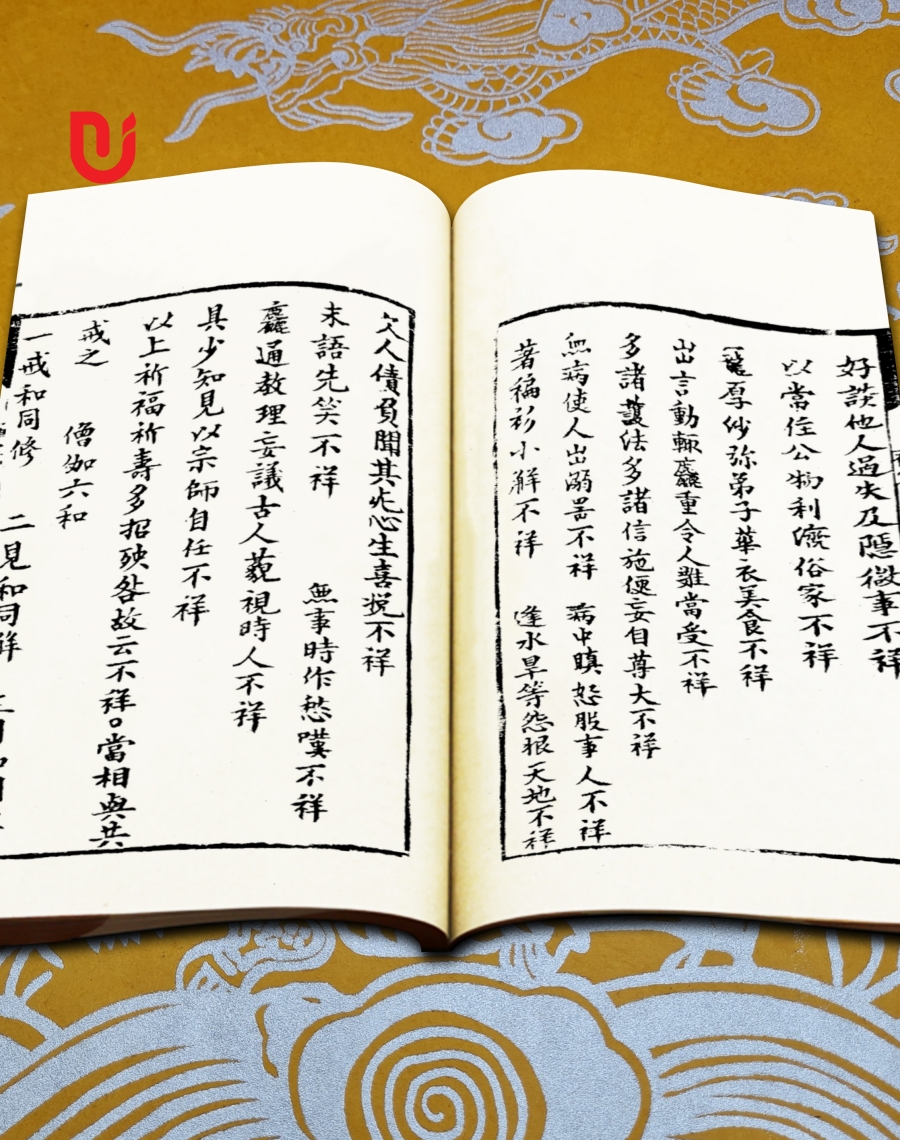 好談他人過失及隱微事不祥
以常住公物利濟俗家不祥
寵厚紗弥弟子華衣美食不祥
出言動輒麤重令人難當受不祥
多諸護法多諸信施便妄自尊大不祥
無病使人出溺器不祥 病中瞋怒服事人不祥
著褊衫小解不祥 逢水旱等怨恨天地不祥
欠人債負聞其死心生喜悅不祥
未語先笑不祥 無事時作愁嘆不祥
麤通教理妄議古人藐視時人不祥
具少知見以宗師自任不祥
以上祈福祈壽多招殃咎故云不祥。當相與共
戒之 僧伽六和
一戒和同修 二見和同解